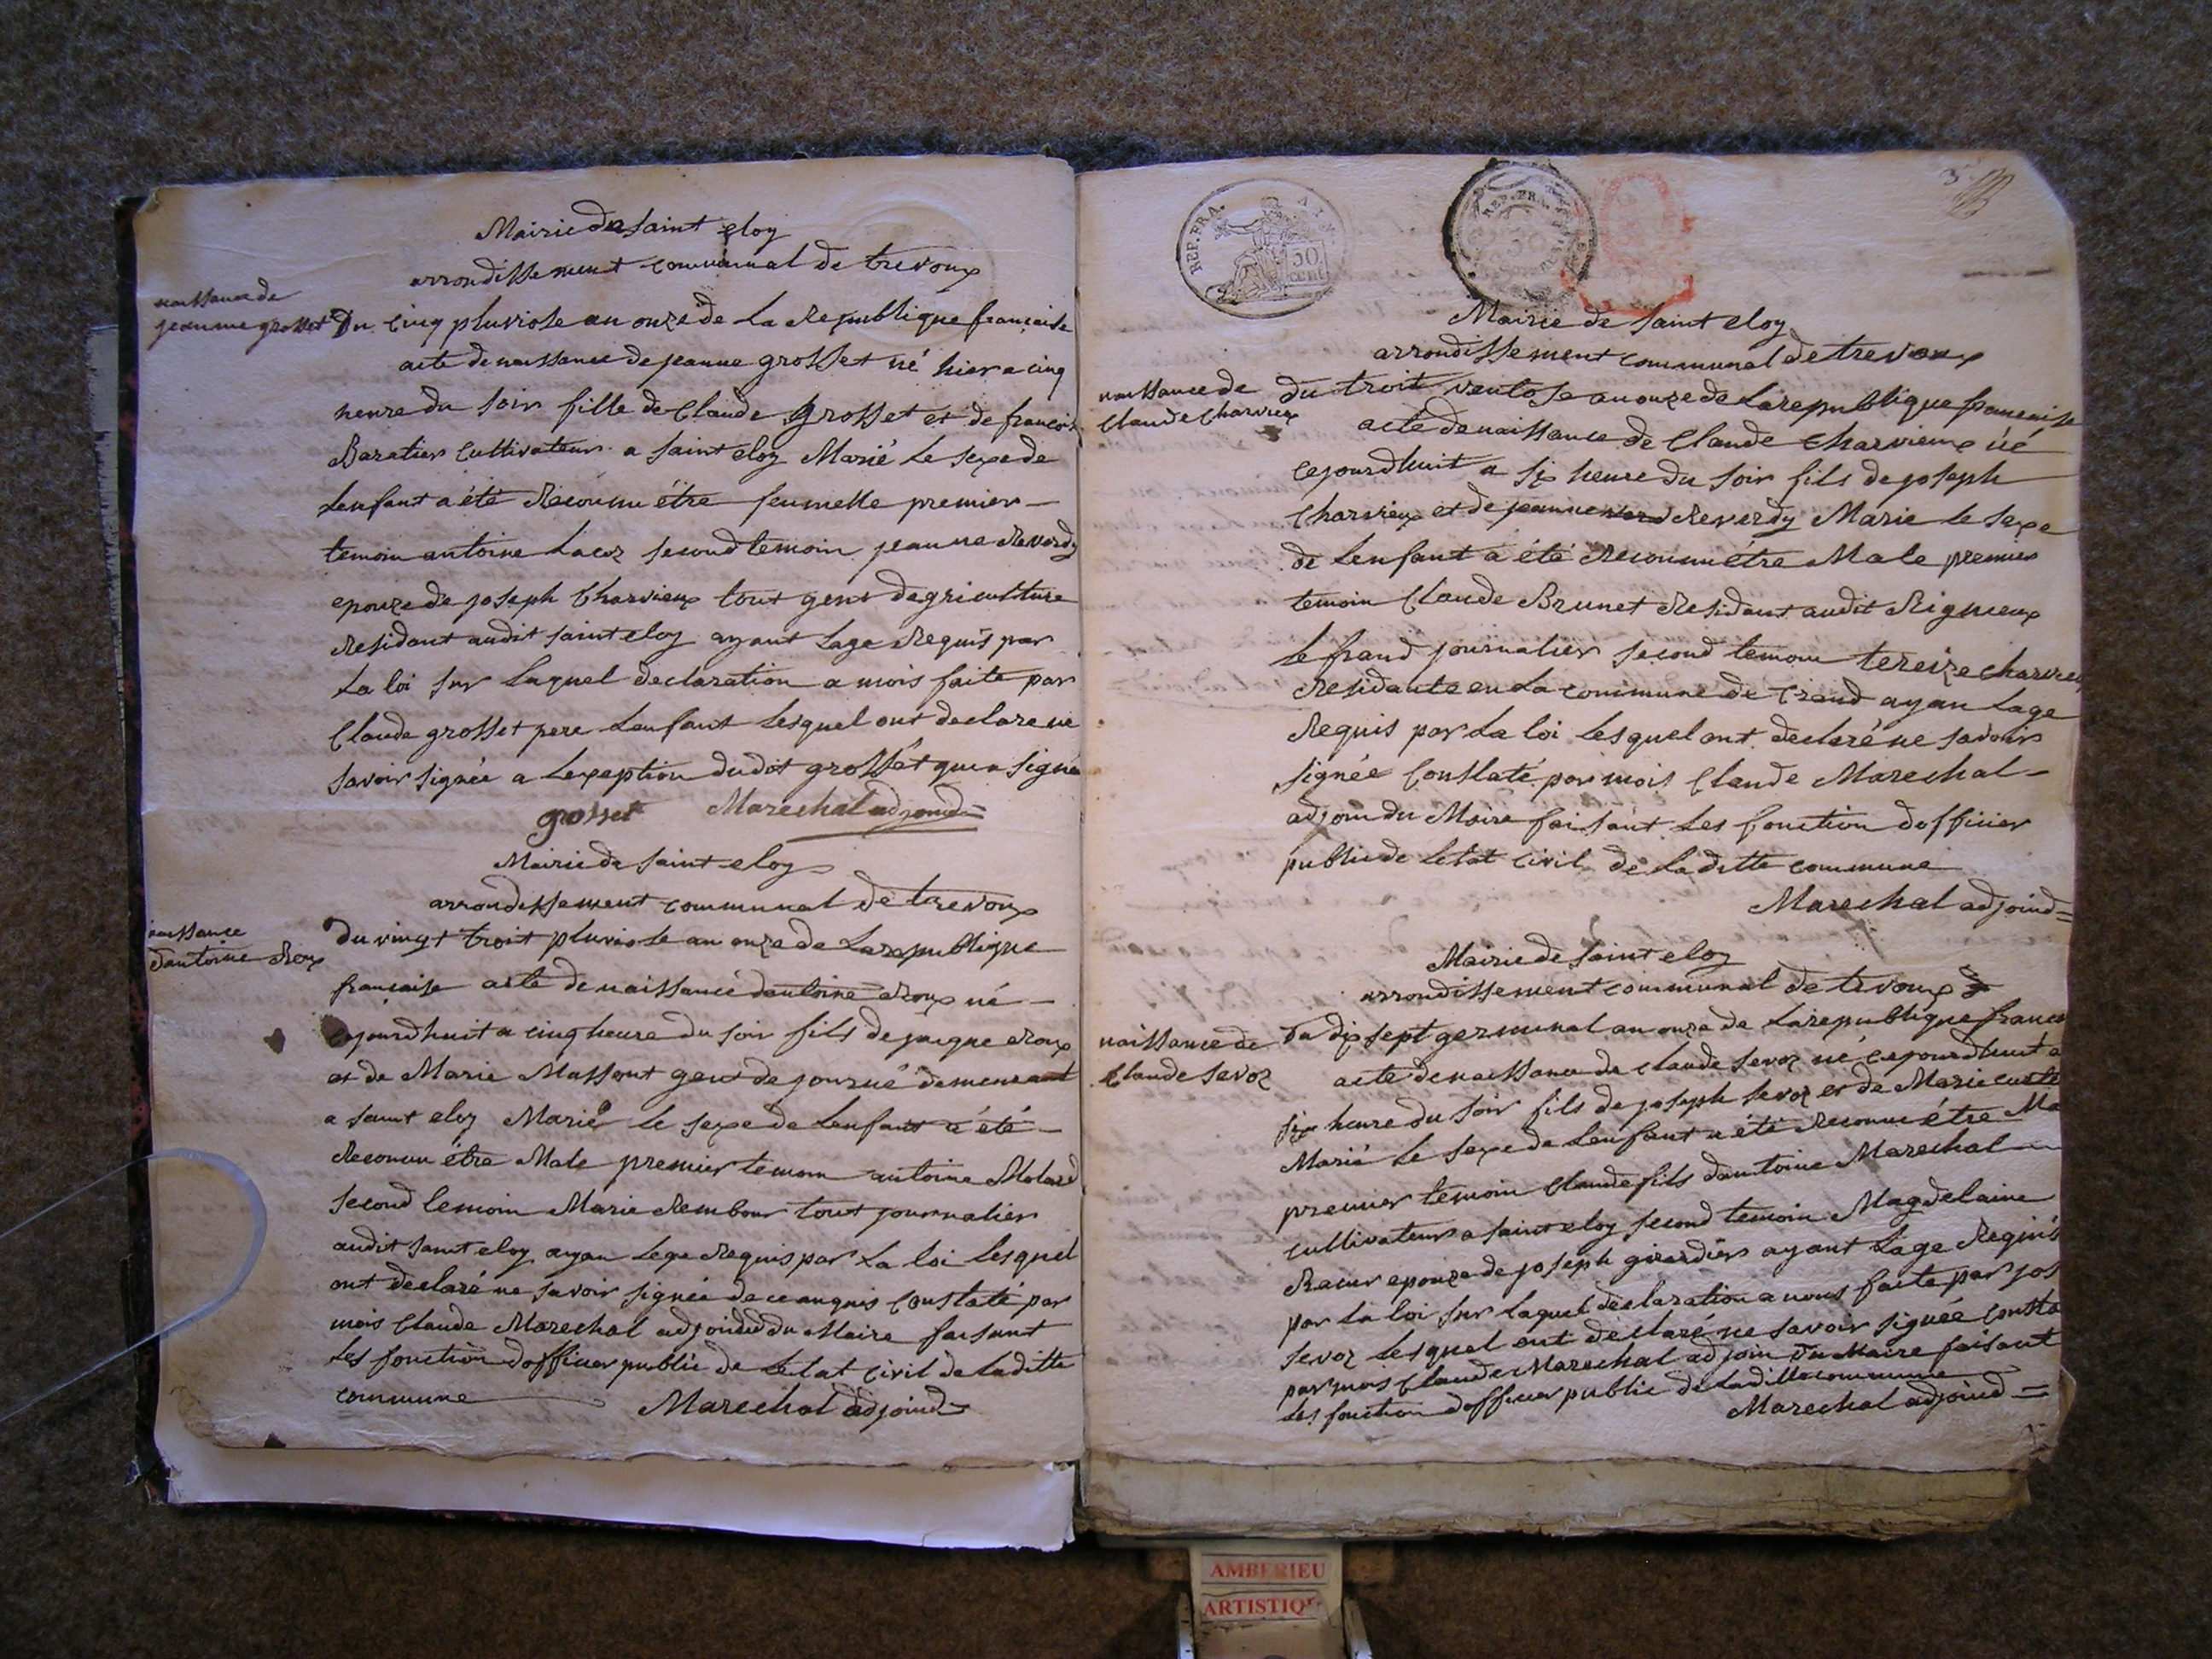 Mairie de saint eloy
arrondissement communal de trevoux
naissance de
jeanne grosset
Du cinq pluviose an onze de la Republique française
acte de naissance de jeanne grosset né hier a cinq
heure du soir fille de Claude Grosset et de françois
Baratier Cultivateur a saint eloy Marié Le sexe de
Lenfant a été Reconnu être feumelle premier
temoin antoine Lacoz second temoin jeanne Reverdy
epouze de joseph Charvieux tout gens degriculture
Residant audit saint eloy ayant Lage Requis par
La loi sur Laquel declaration a mois faite par
Claude grosset pere Lenfant Lesquel ont declare ne
savoir signée a Lexeption dudit grosset qui a signé
grosset Marechal adjoind
Mairie de saint eloy
arrondissement communal de trevoux
naissance
dantoine Roux
du vingt troit pluviose an onze de La republique
française acte de naissance dantoine Roux né
cejourdhuit a cinq heure du soir fils de jacque Roux
et de Marie Massont gens de journé demeurant
a saint eloy Marié le sexe de Lenfant a été
Reconnu être Male premier temoin antoine Molard
second temoin Marie Rembour tout journalier
audit saint eloy ayan Lege Requis par La loi Lesquel
ont declaré ne savoir signée de ce anquis Constaté par
mois Claude Marechal adjoind du Maire faisant
Les fonction dofficier public de Letat Civil de laditte
commune Marechal adjoind
REP. FRA.
50
CENT
REP. FRA.
3
Mairie de saint eloy
arrondissement communal de trevoux
naissance de
Claude Charvieux
du troit ventose an onze de La republique francaise
acte de naissance de Claude Charvieux né
cejourdhuit a six heure du soir fils de joseph
Charvieux et de jeanne Reverdy Marie le sexe
de Lenfant a été Reconnu être Male premier
temoin Claude Brunet Residant audit Rigneux
Lefrand journalier second temoin tereize charvieux
Residante en La commune de Crand ayan Lage
Requis par La loi Lesquel ont declaré ne savoir
signée Constaté par mois Claude Marechal
adjoin du Maire faisant Les fonction dofficier
public de Letat Civil de Laditte commune
Marechal adjoind
Mairie de saint eloy
arrondissement communal de trevoux
naissance de
Claude Sevoz
Du dix sept germinal an onze de La republique franca
acte de naissance de Claude Sevoz né cejourdhuit a
six heure du soir fils de joseph Sevoz et de Marie
Marié Le sexe de Lenfant a été Reconnu être Ma
premier temoin Claude fils dantoine Marechal
Cultivateur a saint eloy second temoin Magdelaine
epouze de joseph girardier ayant Lage Requis
par La loi sur Laquel declaration a nous faite par jos
Sevoz Lesquel ont declaré ne savoir signée Consta
par mois Claude Marechal adjoin du Maire faisant
Les fonction dofficier public de Laditte commune
Marechal adjoind
AMBERIEU
ARTISTIQ